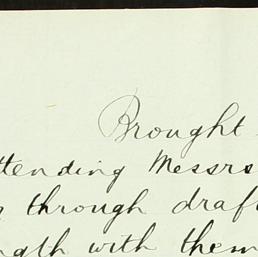 Brought
ttending Messrs
through draf
ngth with them